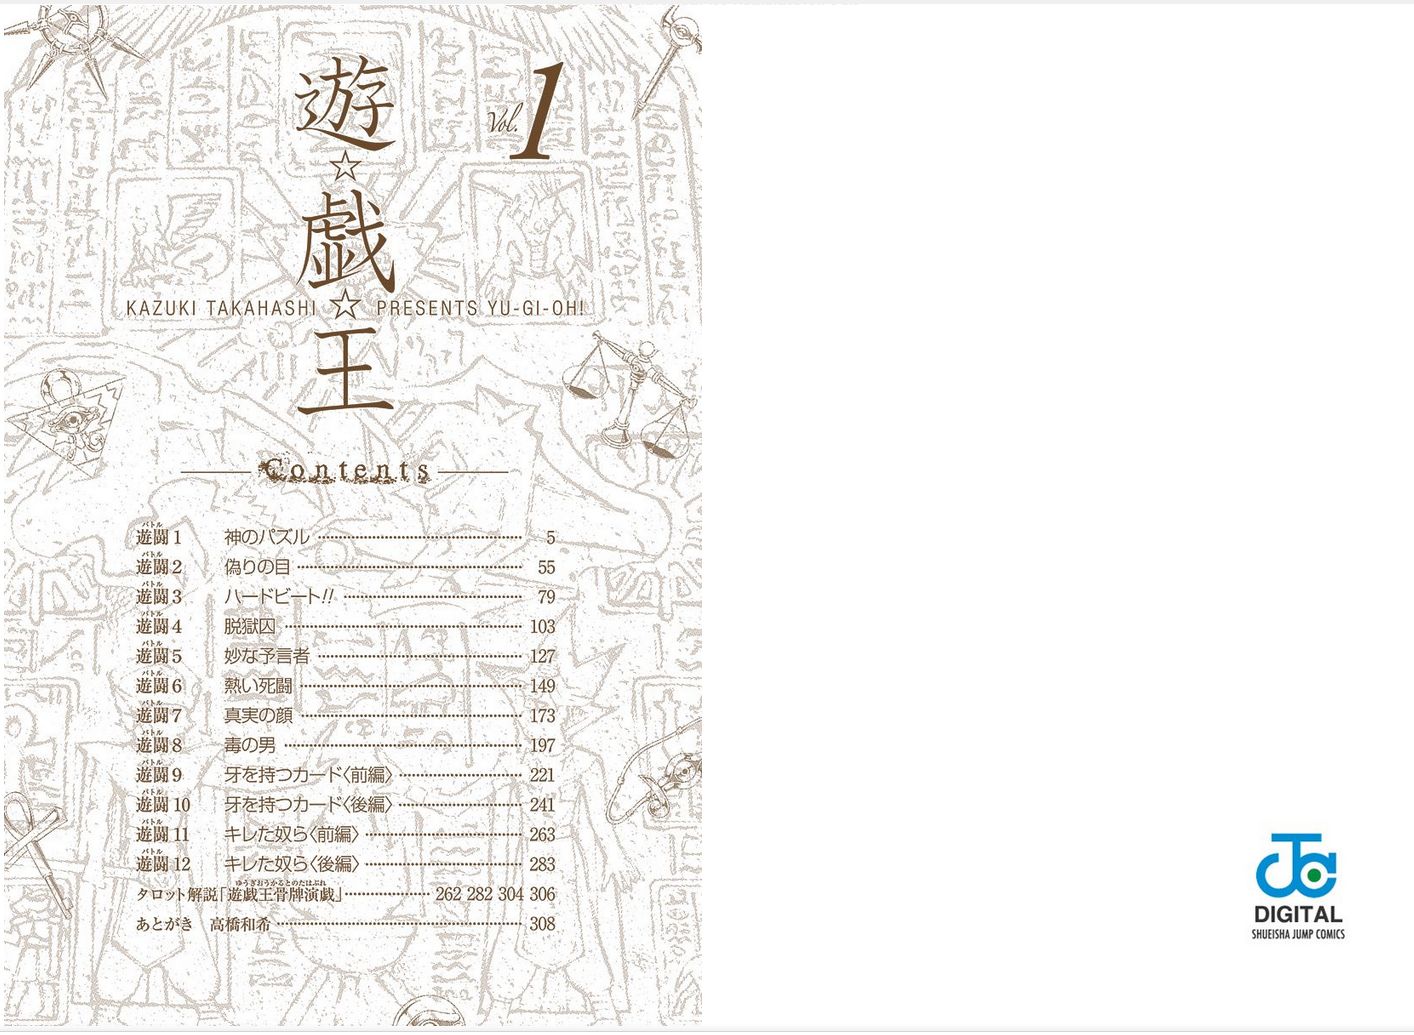 遊☆戯☆王
Vol. 1
KAZUKI TAKAHASHI ☆ PRESENTS YU-GI-OH!
Contents
バトル
遊闘1 神のパズル 5
バトル
遊闘2 偽りの目 55
バトル
遊闘3 ハードビート!! 79
バトル
遊闘4 脱獄囚 103
バトル
遊闘5 妙な予言者 127
バトル
遊闘6 熱い死闘 149
バトル
遊闘7 真実の顔 173
バトル
遊闘8 毒の男 197
バトル
遊闘9 牙を持つカード〈前編〉 221
バトル
遊闘10 牙を持つカード〈後編〉 241
バトル
遊闘11 キレた奴ら〈前編〉 263
バトル
遊闘12 キレた奴ら〈後編〉 283
ゆうぎおうかるとのたはぶれ
タロット解説「遊戯王骨牌演戯」 262 282 304 306
あとがき 高橋和希 308
DIGITAL
SHUEISHA JUMP COMICS